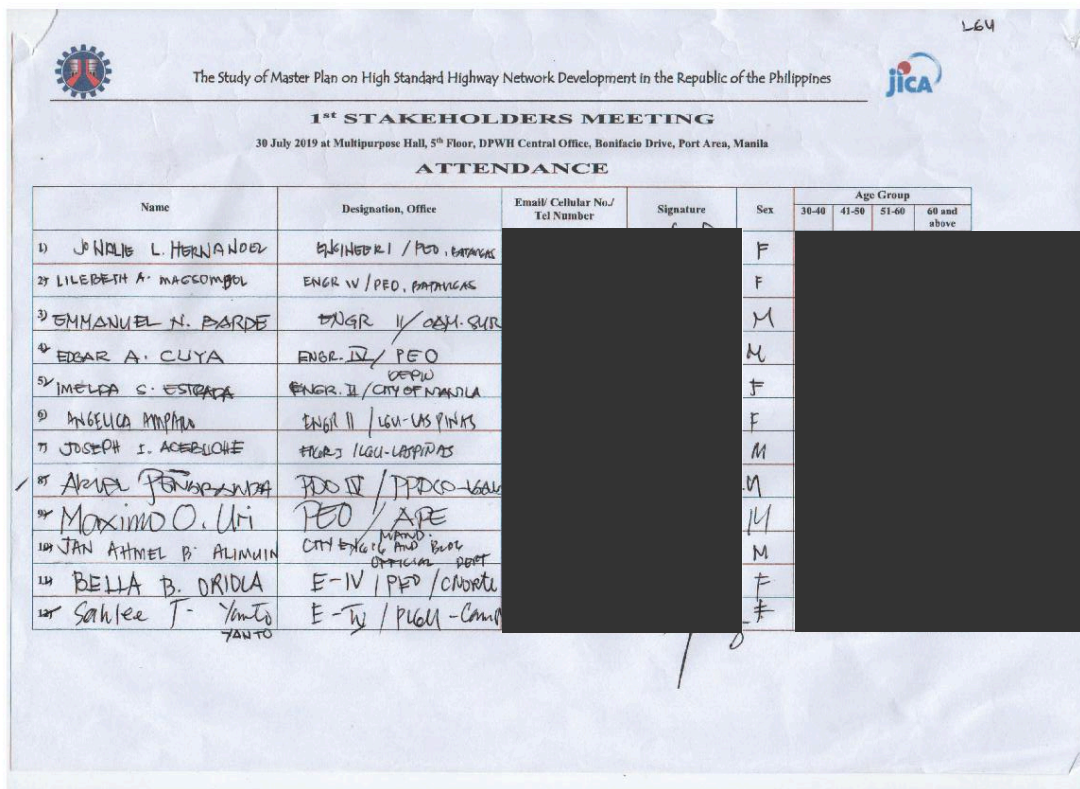 LGU
The Study of Master Plan on High Standard Highway Network Development in the Republic of the Philippines
jica
1st STAKEHOLDERS MEETING
30 July 2019 at Multipurpose Hall, 5th Floor, DPWH Central Office, Bonifacio Drive, Port Area, Manila
ATTENDANCE
Name Designation, Office Email/ Cellular No./ Tel Number Signature Sex Age Group
30-40 41-50 51-60 60 and above
1) JONALIE L. HERNANDEZ ENGINEER I / PEO, BATANGAS F
2) LILEBETH A. MAGSOMBOL ENGR IV / PEO, BATANGAS F
3) EMMANUEL N. BARDE ENGR II / CAM. SUR M
4) EDGAR A. CUYA ENGR. IV / PEO M
5) IMELDA S. ESTRADA ENGR. II / DEPW CITY OF MANILA F
6) ANGELICA AMPARO ENGR II / LGU-LAS PINAS F
7) JOSEPH I. ENGR I / LGU-LASPIÑAS M
8) ARIEL PEÑARANDA PDO IV / M
9) Maximo O. Uri PEO / APE M
10) JAN AHMEL B. ALIMUIN CITY ENG'G AND BLDG OFFICIAL DEPT MAND. M
11) BELLA B. ORIOLA E-IV / PEO / CNorte F
12) Sahlee T. Yanto E-IV / PLGU - Cam F
YANTO